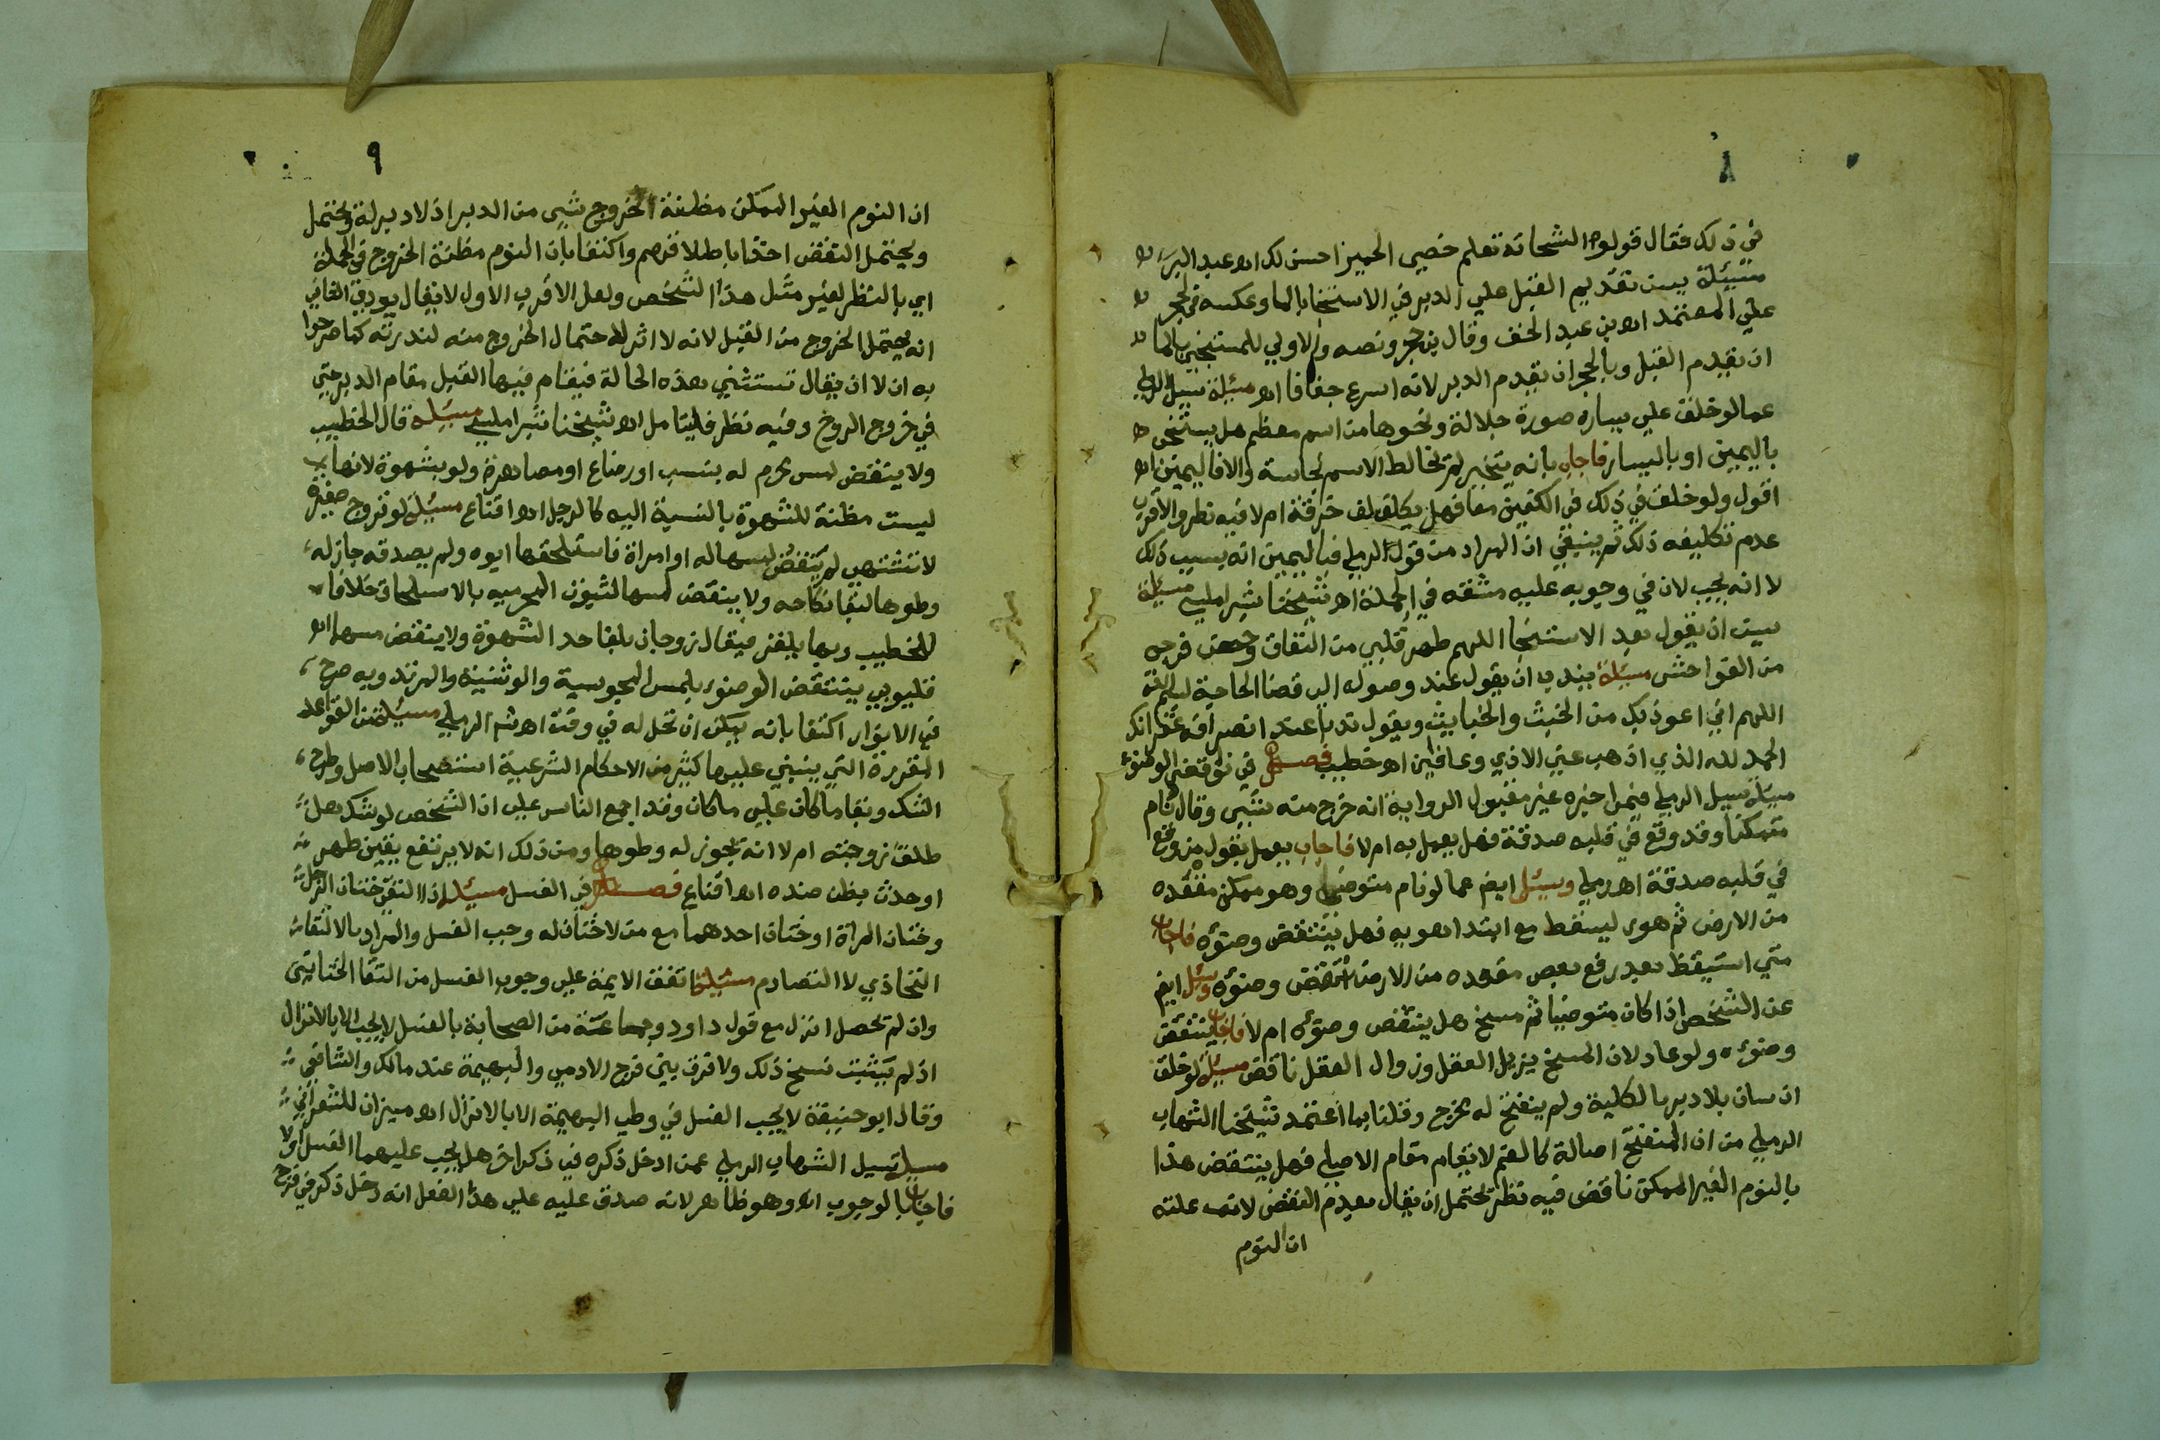 ٨
في ذلك فقال قولوا الشحاتة تعلم خصي الحمير احسن لك اه عبد البر اه
مسئلة يسن تقديم القبل علي الدبر في الاستنجا بالما وعكسه في الحجر
علي المعتمد اه بن عبد الحف وقال بن حجر ونصه والاولي للمستنجي بالما
ان يقدم القبل وبالحجر ان يقدم الدبر لانه اسرع جفافا اه مسئلة سيل الرملي
عما لو خلق علي يساره صورة جلالة ونحوها من اسم معظم هل يستنجي
باليمين او باليسار فاجاب بانه يتخير لم تخالط الاسم نجاسة والا فاليمين اه
اقول ولو خلق في ذلك في الكفين معا فهل يكلف لف خرقة ام لا فيه نظر والاقرب
عدم تكليفه ذلك ثم ينبغي ان المراد من قول الرملي فباليمين انه يسبب ذلك
لا انه يجب لان في وجوبه عليه مشقه في الجملة اه شيخنا شبراملسي مسئلة
يسن ان يقول بعد الاستنجا اللهم طهر قلبي من النفاق وحصن فرجي
من الفواحش مسئلة يندب ان يقول عند وصوله الي قضا الحاجة بسم الله
اللهم اني اعوذ بك من الخبث والخبايث ويقول ندبا عند انصرافه غفرانك
الحمد لله الذي اذهب عني الاذي وعافاني اه خطيب فصل في نواقض الوضوء
مسئلة سيل الرملي فيمن اخبره غير مقبول الرواية انه خرج منه شيي وقال نام
متمكنا وقد وقع في قلبه صدقة فهل يعمل به ام لا فاجاب يعمل بقول من وقع
في قلبه صدقة اه رملي وسئل ايض عما لو نام متوضيا وهو ممكن مقعده
من الارض ثم هوي ليسقط مع ابتدا هويه فهل ينتقض وضوؤه فاجاب
متي استيقظ بعد رفع بعض مقعده من الارض انتقض وضوؤه وسئل ايض
عن الشخص اذا كان متوضيا ثم مسخ هل ينتقض وضوؤه ام لا فاجاب ينتقض
وضوءه ولو عاد لان المسخ يزيل العقل وزوال العقل ناقض مسئلة لو خلق
انسان بلا دبر بالكلية ولم ينفتح له مخرج وقلنا بما اعتمد شيخنا الشهاب
الرملي من ان المنفتح اصالة كالفم لا يقام مقام الاصلي فهل ينتقض هذا
بالنوم الغير الممكن ناقض فيه نظر يحتمل ان يقال بعدم النقض لانه علته
ان النوم
٩
ان النوم الغير الممكن مظنة الخروج شيي من الدبر اذ لا دبر له ويحتمل
ويحتمل النقض اخذا باطلاقهم واكتفا بان النوم مظنة الخروج في الجملة
اي بالنظر لغير مثل هذا الشخص ولعل الاقرب الاول لا يقال يود في الثاني
انه يحتمل الخروج من القبل لانه لا اثر لاحتمال الخروج منه لندرته كما صرحوا
به ان لا ان يقال تستثني هذه الحالة فيقام فيها القبل مقام الدبر حتي
في خروج الروح وفيه نظر فليتامل اه شيخنا شبراملسي مسئلة قال الخطيب
ولا ينقض لمس محرم له بنسب او رضاع او مصاهرة ولو بشهوة لانها
ليست مظنة للشهوة بالنسبة اليه كالرجل اه اقناع مسئلة لو تزوج صغيرة
لا تشتهي لم ينقض لمسها له او امراة فاستلحقها ابوه ولم يصدقه جاز له
وطوها لبقا نكاحه ولا ينقض لمسها لثبوت المحرميه بالاستلحاق خلافا
للخطيب وبها يلغز فيقال زوجان بلغا حد الشهوة ولا ينقض مسها اه
قليوبي ينتقض الوضوء بلمس المجوسية والوثنية والمرتد وبه صرح
في الانوار اكتفا بانه يمكن ان تحل له في وقت اه شم الرملي مسئلة من القواعد
المقررة التي ينبني عليها كثير من الاحكام الشرعية استصحاب الاصل وطرح
الشك وبقا ما كان علي ما كان وقد اجمع الناس علي ان الشخص لو شك هل
طلق زوجته ام لا انه تجوز له وطوها ومن ذلك انه لا يرتفع يقين طهر
او حدث بظن ضده اه اقناع فصل في الغسل مسئلة اذا التقي ختان الرجل
وختان المراة او ختان احدهما مع من لا ختان له وجب الغسل والمراد بالالتقا
التحاذي لا التصادم مسئلة اتفقت الايمة علي وجوب الغسل من التقا الختانين
وان لم تحصل انزل مع قول داود وجماعة من الصحابة بالغسل لا يجب الا بالانزال
اذ لم يثبت نسخ ذلك ولا فرق بين فرج الادمي والبهيمة عند مالك والشافعي
وقال ابو حنيفة لا يجب الغسل في وطي البهيمة الا بالانزال اه ميزان للشعراني
مسئلة سيل الشهاب الرملي عمن ادخل ذكره في ذكر اخر هل يجب عليهما الغسل او لا
فاجاب بالوجوب اه وهو ظاهر لانه صدق عليه علي هذا الفعل انه دخل ذكر في فرج